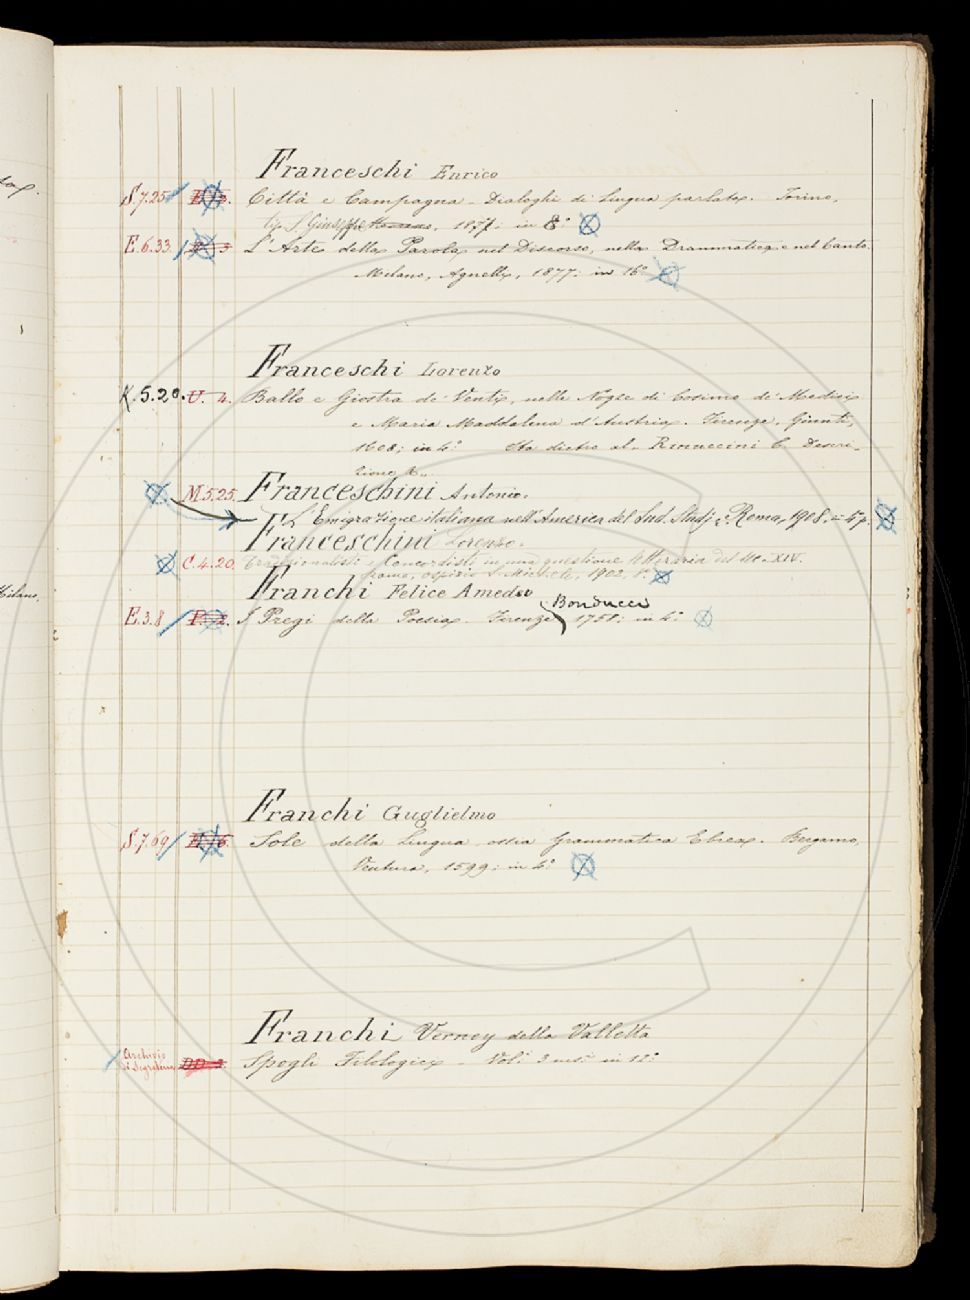 Franceschi Enrico
S.7.25 Città e Campagna - Dialoghi di Lingua parlata. Torino,
tip. S. Giuseppe, 1877; in 8°
E.6.33 L'Arte della Parola nel Discorso, nella Drammatica e nel Canto.
Milano, Agnelli, 1877; in 16°
Franceschi Lorenzo
K.5.20. U. 4. Ballo e Giostra de' Venti, nelle Nozze di Cosimo de' Medici
e Maria Maddalena d'Austria. Firenze, Giunti,
1608; in 4° Sta dietro al Rinuccini C. Descri-
zione &.
M.5.25. Franceschini Antonio.
L'Emigrazione italiana nell'America del Sud. Studj &. Roma, 1908. in 4°
Franceschini Lorenzo.
C.4.20. Tradizionalisti e Concordisti in una questione letteraria del sec. XIV.
Roma, 1902. 8°
Franchi Felice Amedeo
Bonducci
E.3.8 I Pregi della Poesia. Firenze 1758; in 4°
Franchi Guglielmo
S.7.69 Sole della Lingua, ossia Grammatica Ebrea. Bergamo,
Ventura, 1599; in 4°
Franchi Verney della Valletta
Archivio
di Segreteria DD. Spogli Filologici - Vol. 3 mss. in 12°